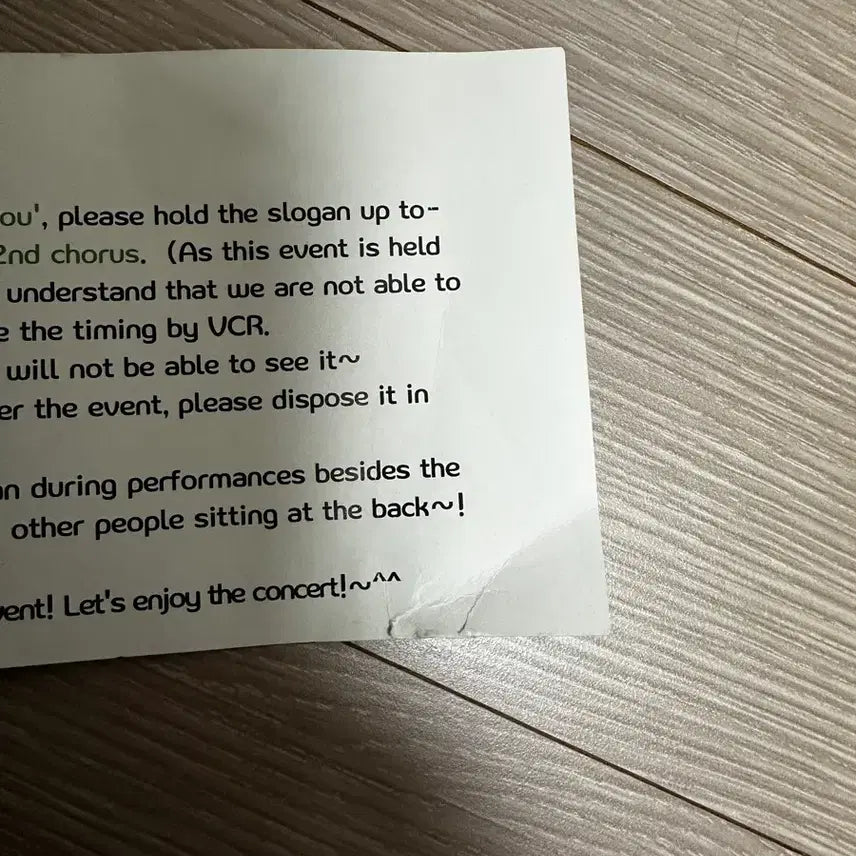 ou', please hold the slogan up to-
2nd chorus. (As this event is held
understand that we are not able to
e the timing by VCR.
will not be able to see it~
er the event, please dispose it in
an during performances besides the
other people sitting at the back~!
vent! Let's enjoy the concert!~^^